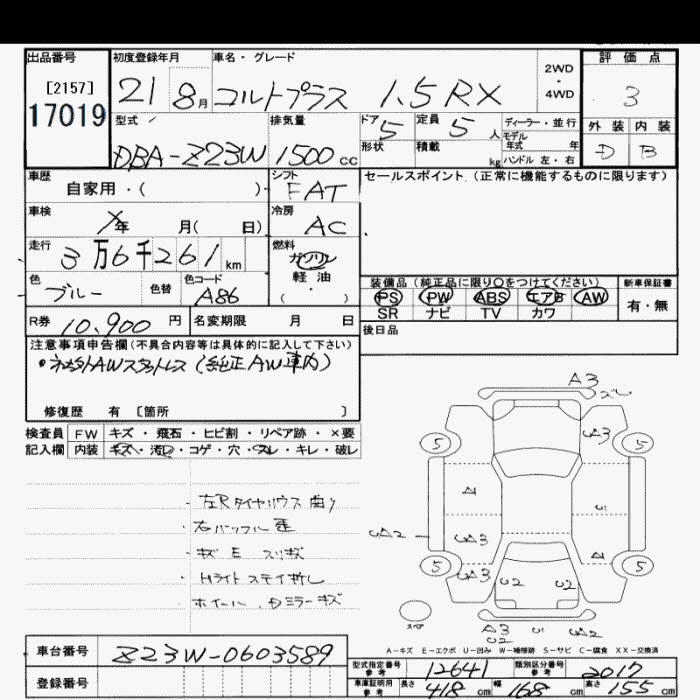 出品番号 初度登録年月 車名・グレード 評価点
[2157] 21 8月 コルトプラス 1.5RX 2WD・4WD 3
17019 型式 排気量 ドア 5 定員 5人 ディーラー・並行 外装 内装
DBA-Z23W 1500cc 形状 積載 kg モデル年式 年 ハンドル 左・右 D B
車歴 シフト セールスポイント (正常に機能するものに限ります)
自家用・( ) FAT
車検 冷房
年 月( 日) AC
走行 燃料
3万6千261km ガソリン
軽油
色 色替 色コード ( ) 装備品 (純正品に限り〇をつけてください) 新車保証書
ブルー A86 PS PW ABS エアB AW 有・無
SR ナビ TV カワ
R券 10,900円 名変期限 月 日 後日品
注意事項申告欄(不具合内容等は具体的に記入して下さい)
(純正AW車内)
修復歴 有 [箇所 ]
検査員 FW キズ・飛石・ヒビ割・リペア跡・×要
記入欄 内装 キズ・汚レ・コゲ・穴・スレ・キレ・破レ
A3
A3
5 5
A2 A3
A3
5 5
U2 U2
A3 A2
スペア
A-キズ E-エクボ U-凹み W-補修跡 S-サビ C-腐食 XX-交換済
キズ E スリキズ
Hライト ステイ折レ
ホイール、Dミラーキズ
車台番号 Z23W-0603589 型式指定番号 参考 12641 類別区分番号 参考 2017
登録番号 車庫証明用 参考 長さ 418cm 幅 168cm 高さ 155cm